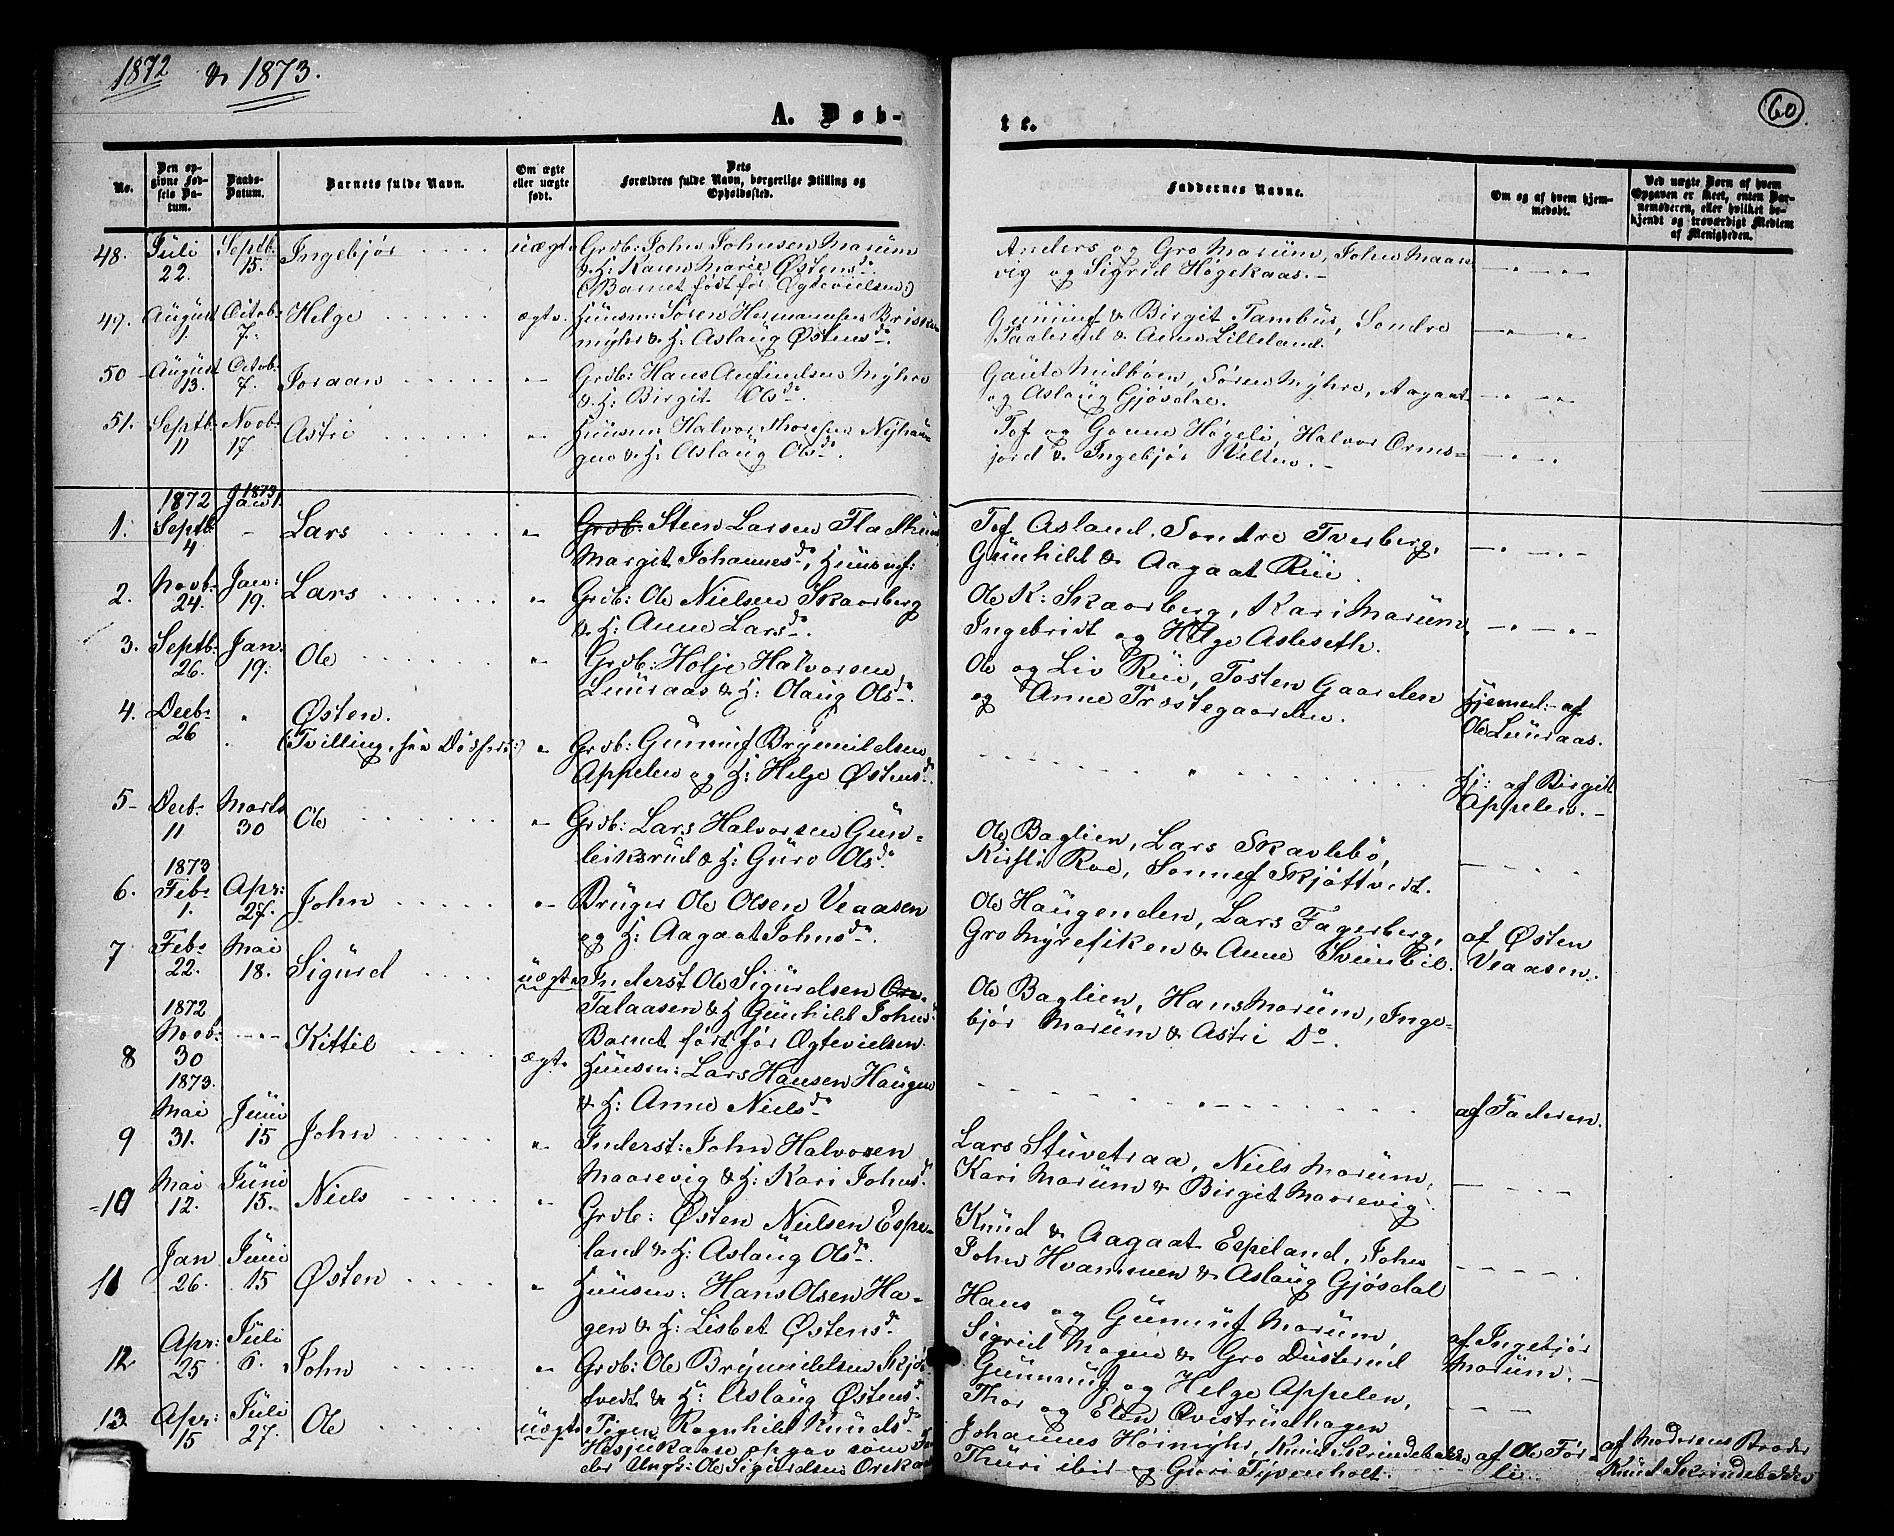 1872 & 1873.
60
A. Døb-
te.
No.
Den opgivne Fødsels Datum.
Daabs-Datum.
Barnets fulde Navn.
Om ægte eller uægte født.
Dets Forældres fulde Navn, borgerlige Stilling og Opholdssted.
Faddernes Navne.
Om og af hvem hjemmedøbt.
Ved uægte Børn af hvem Opgaven er skeet, enten Barnemoderen, eller hvilket bekjendt og troværdigt Medlem af Menigheden.
48. Juli 22. Septb. 15. Ingebjør uægte Grdb: John Johnsen Marum
& H: Karen Marie Østensd.
(Barnet født før Ægtevielsen:)
Anders og Gro Marum, John Maar
vig og Sigrid Høgekaas.-
49. August 1. Octob. 7. Helge ægte. Huusm: Søren Hermansen Briske
myhr & H: Aslaug Østensd.
Gunnuf & Birgit Tambur, Sondre
Taalerud & Anne Lilleland.
50 August 13. Octob. 7. Joraan Grdb: Hans Amundsen Myhre
& H: Birgit Olsd.
Gaute Midbøen, Søren Myhre, Aagaat
og Aslaug Gjøsdal.
51. Septb. 11 Novb. 17. Astri Huusm: Halvor Thorsen Nyhau-
gen & H: Aslaug Olsd.
Tof og Gonne Høgeli, Halvor Orms-
jord & Ingebjør Kilen.-
1. 1872 Septb. 4 1873 Jan 1. Lars Grdb: Steen Larsen Flatthus
Margit Johannesd., Huusmf:
Tof Asland, Sondre Tverberg,
Gunhild & Aagaat Rui.
2. Novb. 24. Jan: 19. Lars Grdb: Ole Nielsen Skaarberg
& H: Anne Larsd.
Ole K: Skaarberg, Kari Marum,
Ingebridt og Helge Asleseth.
3. Septb. 26. Jan. 19. Ole Grdb: Holje Halvorsen
Luuraas & H: Olaug Olsd.
Ole og Liv Rui, Tosten Gaarden
og Anne Prestegaarden.
hjemd: af
Ole Luuraas.
4. Decb. 26 Østen.
(Tvilling, see Dødfødt:) Grdb: Gunnuf Brynnildsen
Appelen og H: Helge Østensd.
hj: af Birgit
Appelen.-
5- Decb. 11 Marts 30 Ole Grdb: Lars Halvorsen Gun-
leiksrud & H: Guro Olsd.
Ole Baglien, Lars Skavlebø,
Kirsti Roe, Sonnef Skjøttvedt.
6. 1873 Feb. 1. Apr: 27. John Bruger Ole Olsen Veaasen
og H: Aagaat Johnsd.
Ole Haugenden, Lars Fagerberg,
Gro Myrefiken & Anne Svinbil.
af Østen
Veaasen.
7 Feb. 22. Mai 18. Sigurd uægte Inderst Ole Sigurdsen
Talaasen & H Gunhild Johnsd.
Barnet født før Ægtevielsen.
Ole Baglien, Hans Marum, Inge-
bjør Marum & Astri Do.
8 1872 Novb. 30 Kittil ægte Huusm: Lars Hansen Haugen
& H: Anne Nielsd.
af Faderen.
9 1873. Mai 31. Juni 15 John Inderst: John Halvorsen
Maarevig & H: Kari Johnsd.
Lars Stuvetraa, Niels Marum,
Kari Marum & Birgit Maarevig.
10 Mai 12. Juni 15. Niels Grdb: Østen Nielsen Espe-
land & H: Aslaug Olsd.
Knud & Aagaat Espeland, John
John Hvammen & Aslaug Gjøsdal
11 Jan 26. Juni 15 Østen Huusm: Hans Olsen Ha-
gen & H: Lisbet Østensd.
Hans og Gunnuf Marum,
Sigrid Mogen & Gro Dusterud
af Ingebjør
Marum.-
12 Apr: 25 Juli 6. John Grdb: Ole Brynnildsen Skjøt
tvedt & H: Aslaug Østensd.
Gunnuf og Helge Appelen,
Thor og Elen Qvistrudhagen
13 Apr: 15 Juli 27. Ole uægte Pigen Ragnhild Knudsd.
Hesjukaase opgav som Fa
der Ungk: Ole Sigurdsen Orekaas
Johannes Høimyhr, Knud Skrindebakke
Thuri ibid og Guri Tyvenholt.
af Ole Før-
li.
af Moderens Broder
Knud Skrindebakke